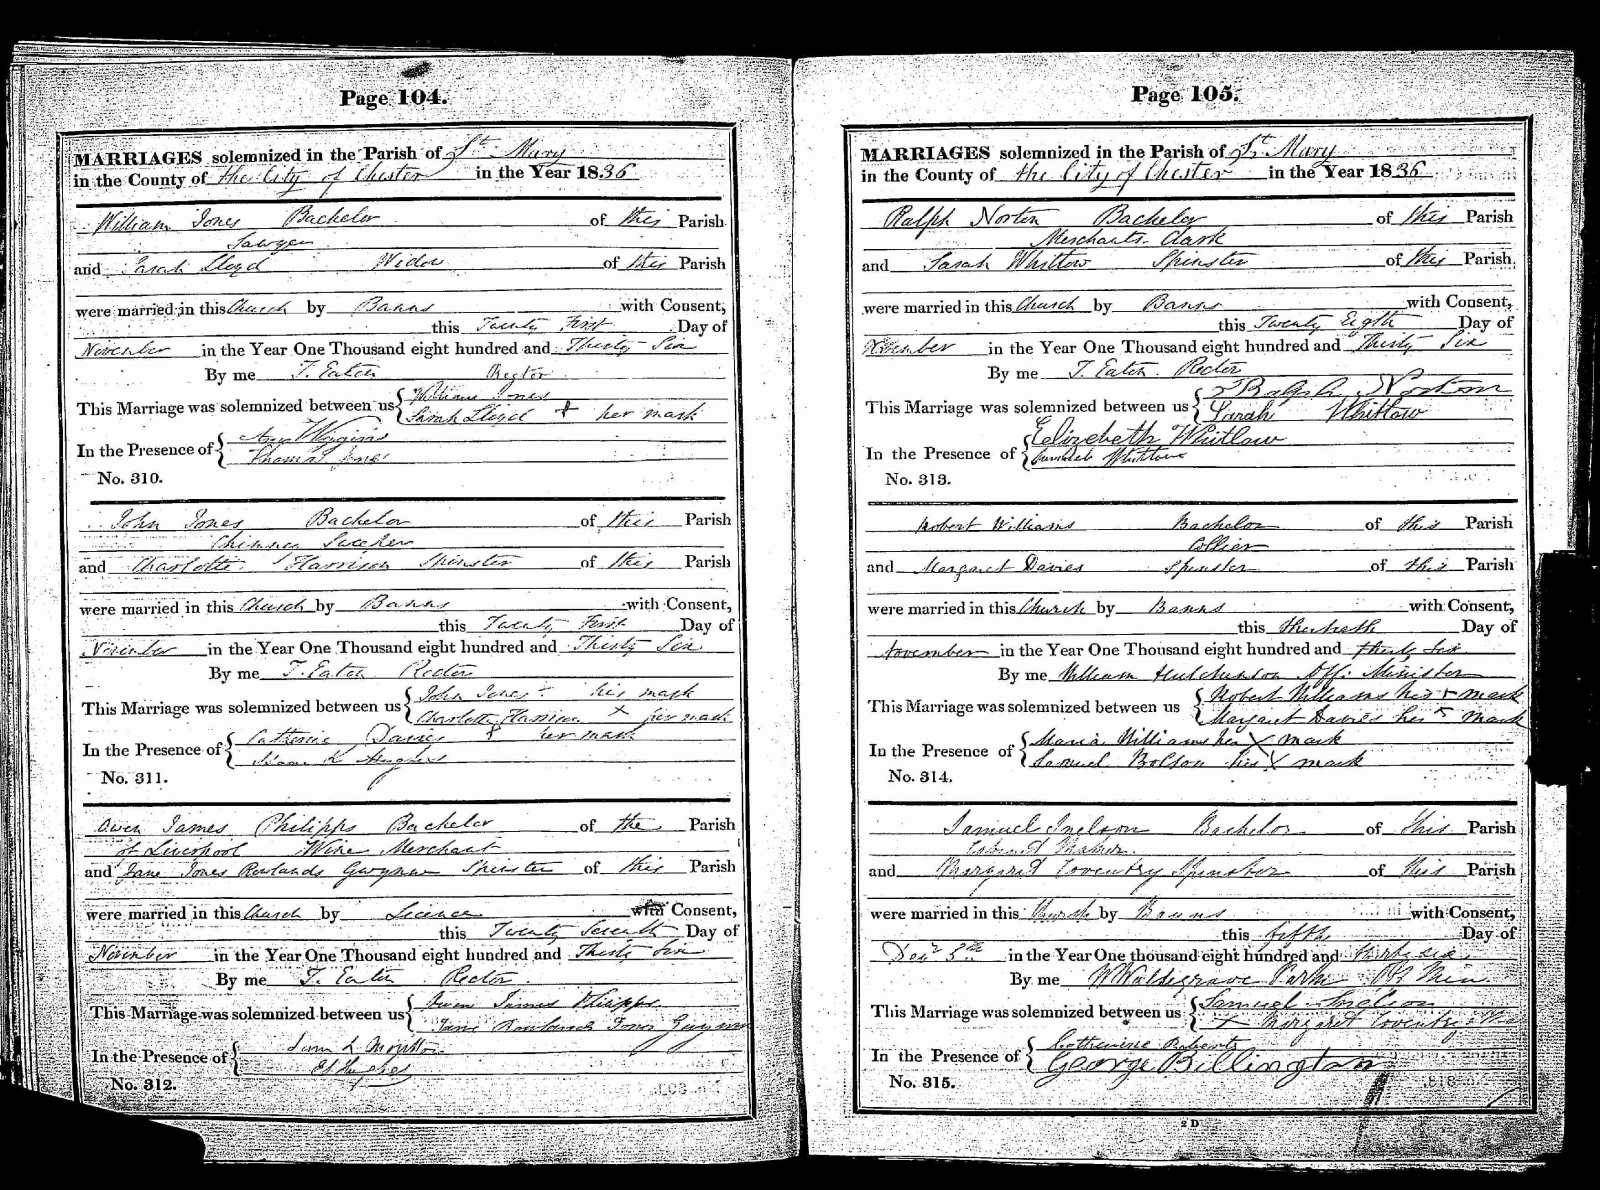 Page 104.
MARRIAGES solemnized in the Parish of St. Mary
in the County of the City of Chester in the Year 1836
William Jones Bachelor of this Parish
Sawyer
and Sarah Lloyd Widow of this Parish
were married in this Church by Banns with Consent,
this Twenty First Day of
November in the Year One Thousand eight hundred and Thirty Six
By me T. Eaton Rector
This Marriage was solemnized between us William Jones
Sarah Lloyd + her mark
In the Presence of
Thomas Jones
No. 310.
John Jones Bachelor of this Parish
and Charlotte Harrison Spinster of this Parish
were married in this Church by Banns with Consent,
this Twenty First Day of
November in the Year One Thousand eight hundred and Thirty Six
By me T. Eaton Rector
This Marriage was solemnized between us John Jones + his mark
Charlotte Harrison × her mark
In the Presence of Catherine Davies + her mark
Hughes
No. 311.
Owen James Philipps Bachelor of the Parish
of Liverpool Wine Merchant
and Jane Jones Rowlands Gwynne Spinster of this Parish
were married in this Church by Licence with Consent,
this Twenty Seventh Day of
November in the Year One Thousand eight hundred and Thirty Six
By me T. Eaton Rector
This Marriage was solemnized between us Owen James Philipps
Jane Rowlands Jones Gwynne
In the Presence of
No. 312.
Page 105.
MARRIAGES solemnized in the Parish of St. Mary
in the County of the City of Chester in the Year 1836
Ralph Norton Bachelor of this Parish
Merchants Clark
and Sarah Whitlow Spinster of this Parish
were married in this Church by Banns with Consent,
this Twenty Eigth Day of
November in the Year One Thousand eight hundred and Thirty Six
By me T. Eaton Rector
This Marriage was solemnized between us Ralph Norton
Sarah Whitlow
In the Presence of Elizebeth Whitlow
Whitlow
No. 313.
Robert Williams Bachelor of this Parish
Collier
and Margaret Davies Spinster of this Parish
were married in this Church by Banns with Consent,
this Day of
November in the Year One Thousand eight hundred and thirty six
By me William Hutchinson Off: Minister
This Marriage was solemnized between us Robert Williams his + mark
Margaret Davies her + mark
In the Presence of Maria Williams her × mark
Samuel his × mark
No. 314.
Samuel Snelson Bachelor of this Parish
and Margaret Coventry Spinster of this Parish
were married in this Church by Banns with Consent,
this fifth Day of
Decr 5th in the Year One thousand eight hundred and thirty six
By me W Waldegrave Park
This Marriage was solemnized between us Samuel Snelson
× Margaret Coventry
In the Presence of Catherine Roberts
George Billington
No. 315.
2 D